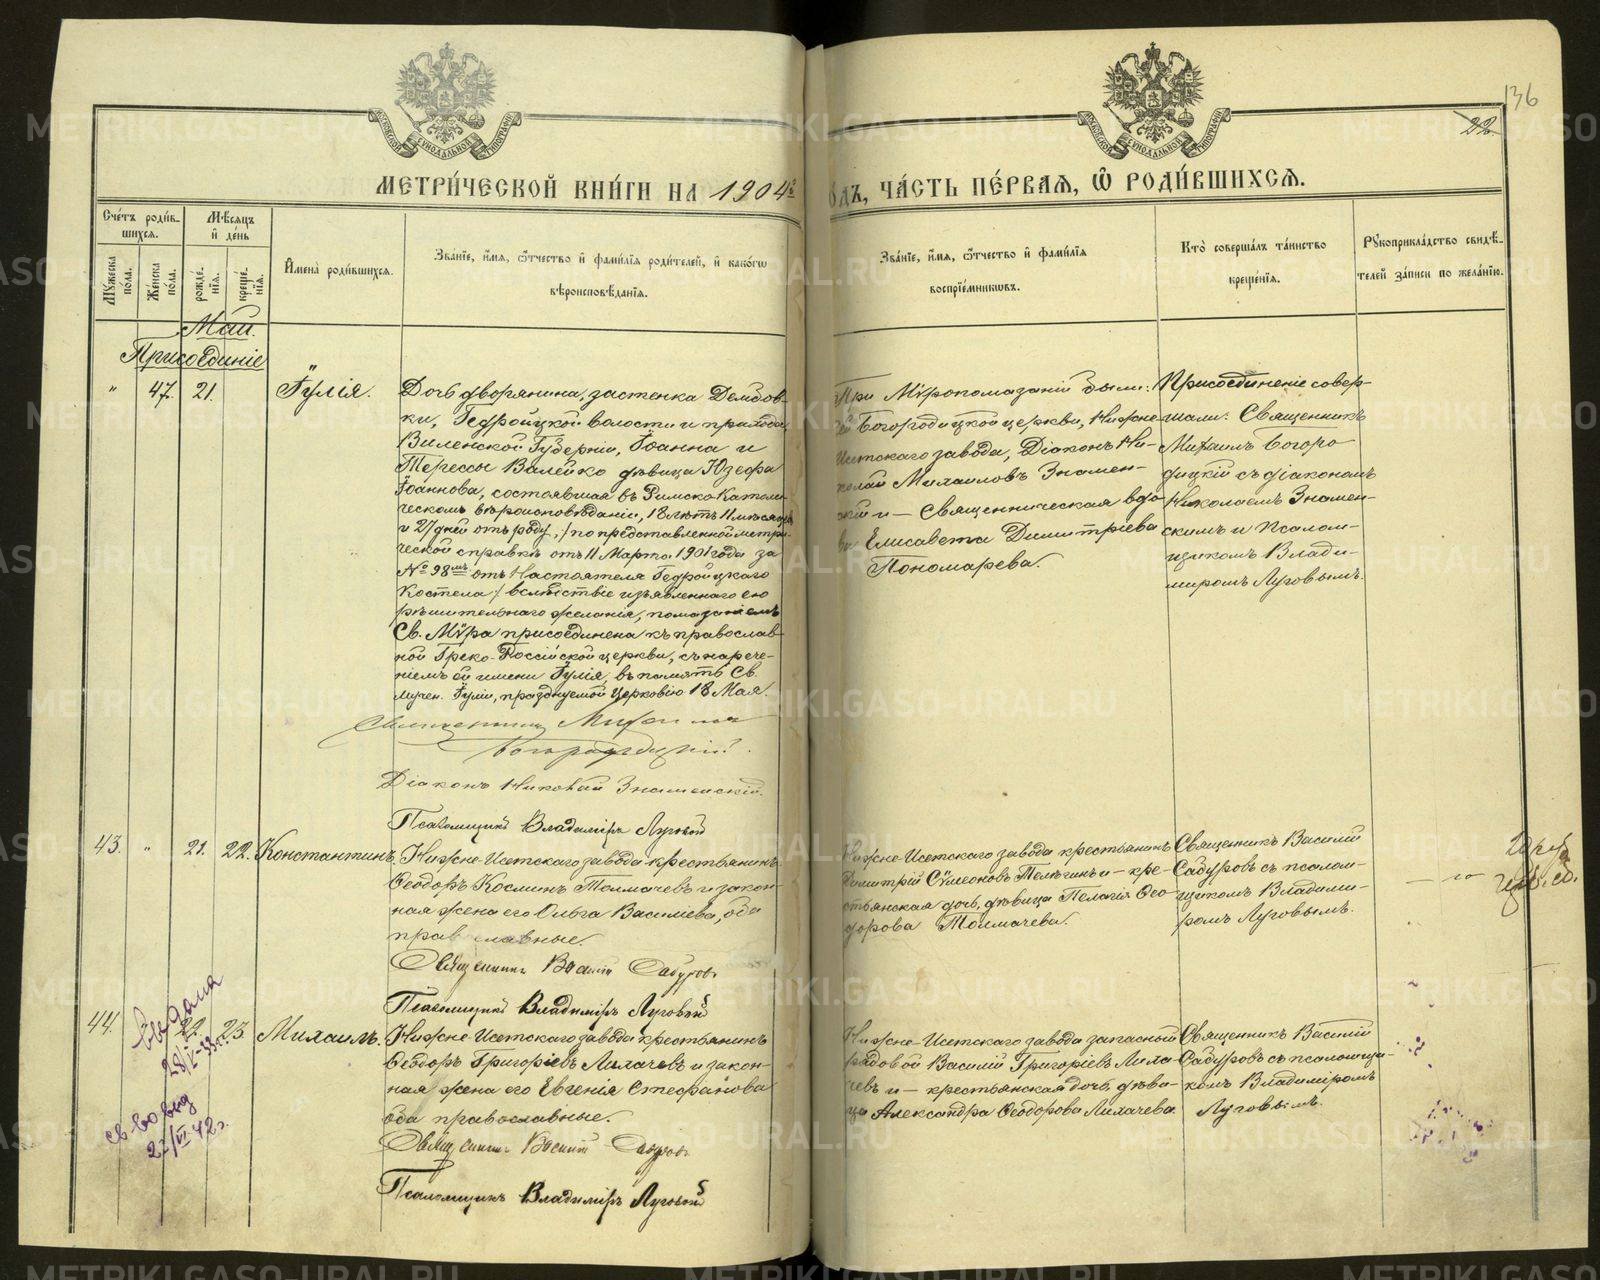 136
22.
МОСКОВСКОЙ СѴНОДАЛЬНОЙ ТИПОГРАФІИ
МОСКОВСКОЙ СѴНОДАЛЬНОЙ ТИПОГРАФІИ
МЕТРИ́ЧЕСКОЙ КНИ́ГИ НА 1904
ОДЪ, ЧА́СТЬ ПЕ́РВАЯ, Ѡ҆ РОДИ́ВШИХСЯ.
Сче́тъ роди́в-
шихся.
Мѣ́сяцъ
и҆ де́нь
Мꙋ́жеска по́ла.
Же́нска по́ла.
рожде́нїя.
креще́нїя.
И҆мена̀ роди́вшихся.
Зва́нїе, и҆́мя, ѻ҆́тчество и҆ фами́лїя роди́телей, и҆ како́гѡ
вѣроисповѣ́данїя.
Зва́нїе, и҆́мя, ѻ҆́тчество и҆ фами́лїя
воспрїе́мникѡвъ.
Кто̀ соверша́лъ та́инство
креще́нїя.
Рꙋкоприкла́дство свидѣ́-
телей за́писи по жела́нїю.
Май.
Присоединіе
" 47. 21.
Іулія.
Дочь дворянина, застенка Демдов-
ки, Гедройцкой волости и прихода
Виленской Губерніи, Іоанна и
Терессы Валейко дѣвица Юзефа
Іоаннова, состоявшая въ Римско-Католи-
ческомъ вѣроисповѣданіи, 18 лѣтъ 11 мѣсяцевъ
и 27 дней отъ роду, /по представленной метри-
ческой справкѣ отъ 11 Марта 1901 года за
№ 98мъ отъ Настоятеля Гедройцкаго
Костела/ вслѣдствіе изъявленнаго ею
рѣшительнаго желанія, помазаніемъ
Св. Мѵра присоединена къ православ-
ной Греко-Россійской церкви, съ нарече-
ніемъ ей имени Іулія, въ память Св.
Мучен. Іуліи, празднуемой Церковію 18 Мая.
Священникъ Михаилъ
Богородицкій.
Діаконъ Николай Знаменскій.
Псаломщикъ Владиміръ Луговой
При Мѵропомазаніи были:
Богородицкой церкви, Нижне-
Исетскаго завода, Діаконъ Ни-
колай Михаиловъ Знамен-
скій и — Священническая вдо-
ва Елисавета Димитріева
Пономарева.
Присоединеніе совер-
шали: Священникъ
Михаилъ Богоро-
дицкій съ діакономъ
Николаемъ Знамен-
скимъ и Псалом-
щикомъ Влади-
миромъ Луговымъ.
43. " 21. 22.
Константинъ.
Нижне-Исетскаго завода крестьянинъ
Ѳеодоръ Космин Толмачевъ и закон-
ная жена его Ольга Василіева, оба
православные.
Священникъ Василій Садуровъ
Псаломщикъ Владиміръ Луговой
Нижне-Исетскаго завода крестьянинъ
Димитрій Сѵмеоновъ Телѣгинъ и — кре-
стьянская дочь, дѣвица Пелагія Ѳео-
дорова Толмачева.
Священникъ Василій
Садуровъ съ псалом-
щикомъ Владими-
ромъ Луговымъ.
44. 22. 23.
Михаилъ.
Нижне-Исетскаго завода крестьянинъ
Ѳеодоръ Григоріевъ Лихачевъ и закон-
ная жена его Евгенія Стефанова
оба православные.
Священникъ Василій Садуровъ
Псаломщикъ Владиміръ Луговой
Нижне-Исетскаго завода запасный
рядовой Василій Григоріевъ Лиха-
чевъ и — крестьянская дочь, дѣви-
ца Александра Ѳеодорова Лихачева.
Священникъ Василій
Садуровъ съ псаломщи-
комъ Владиміромъ
Луговымъ.
выдана
28/IV-33г.
св-во выд
22/VI 42г.
METRIKI.GASO-URAL.RU